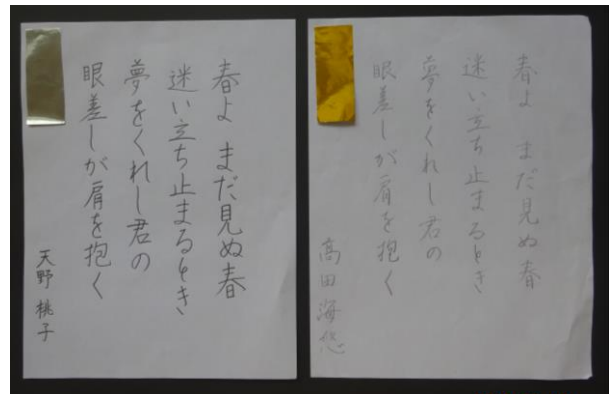 春よ まだ見ぬ春
迷い立ち止まるとき
夢をくれし君の
眼差しが肩を抱く
天野 桃子
春よ まだ見ぬ春
迷い立ち止まるとき
夢をくれし君の
眼差しが肩を抱く
高田海悠